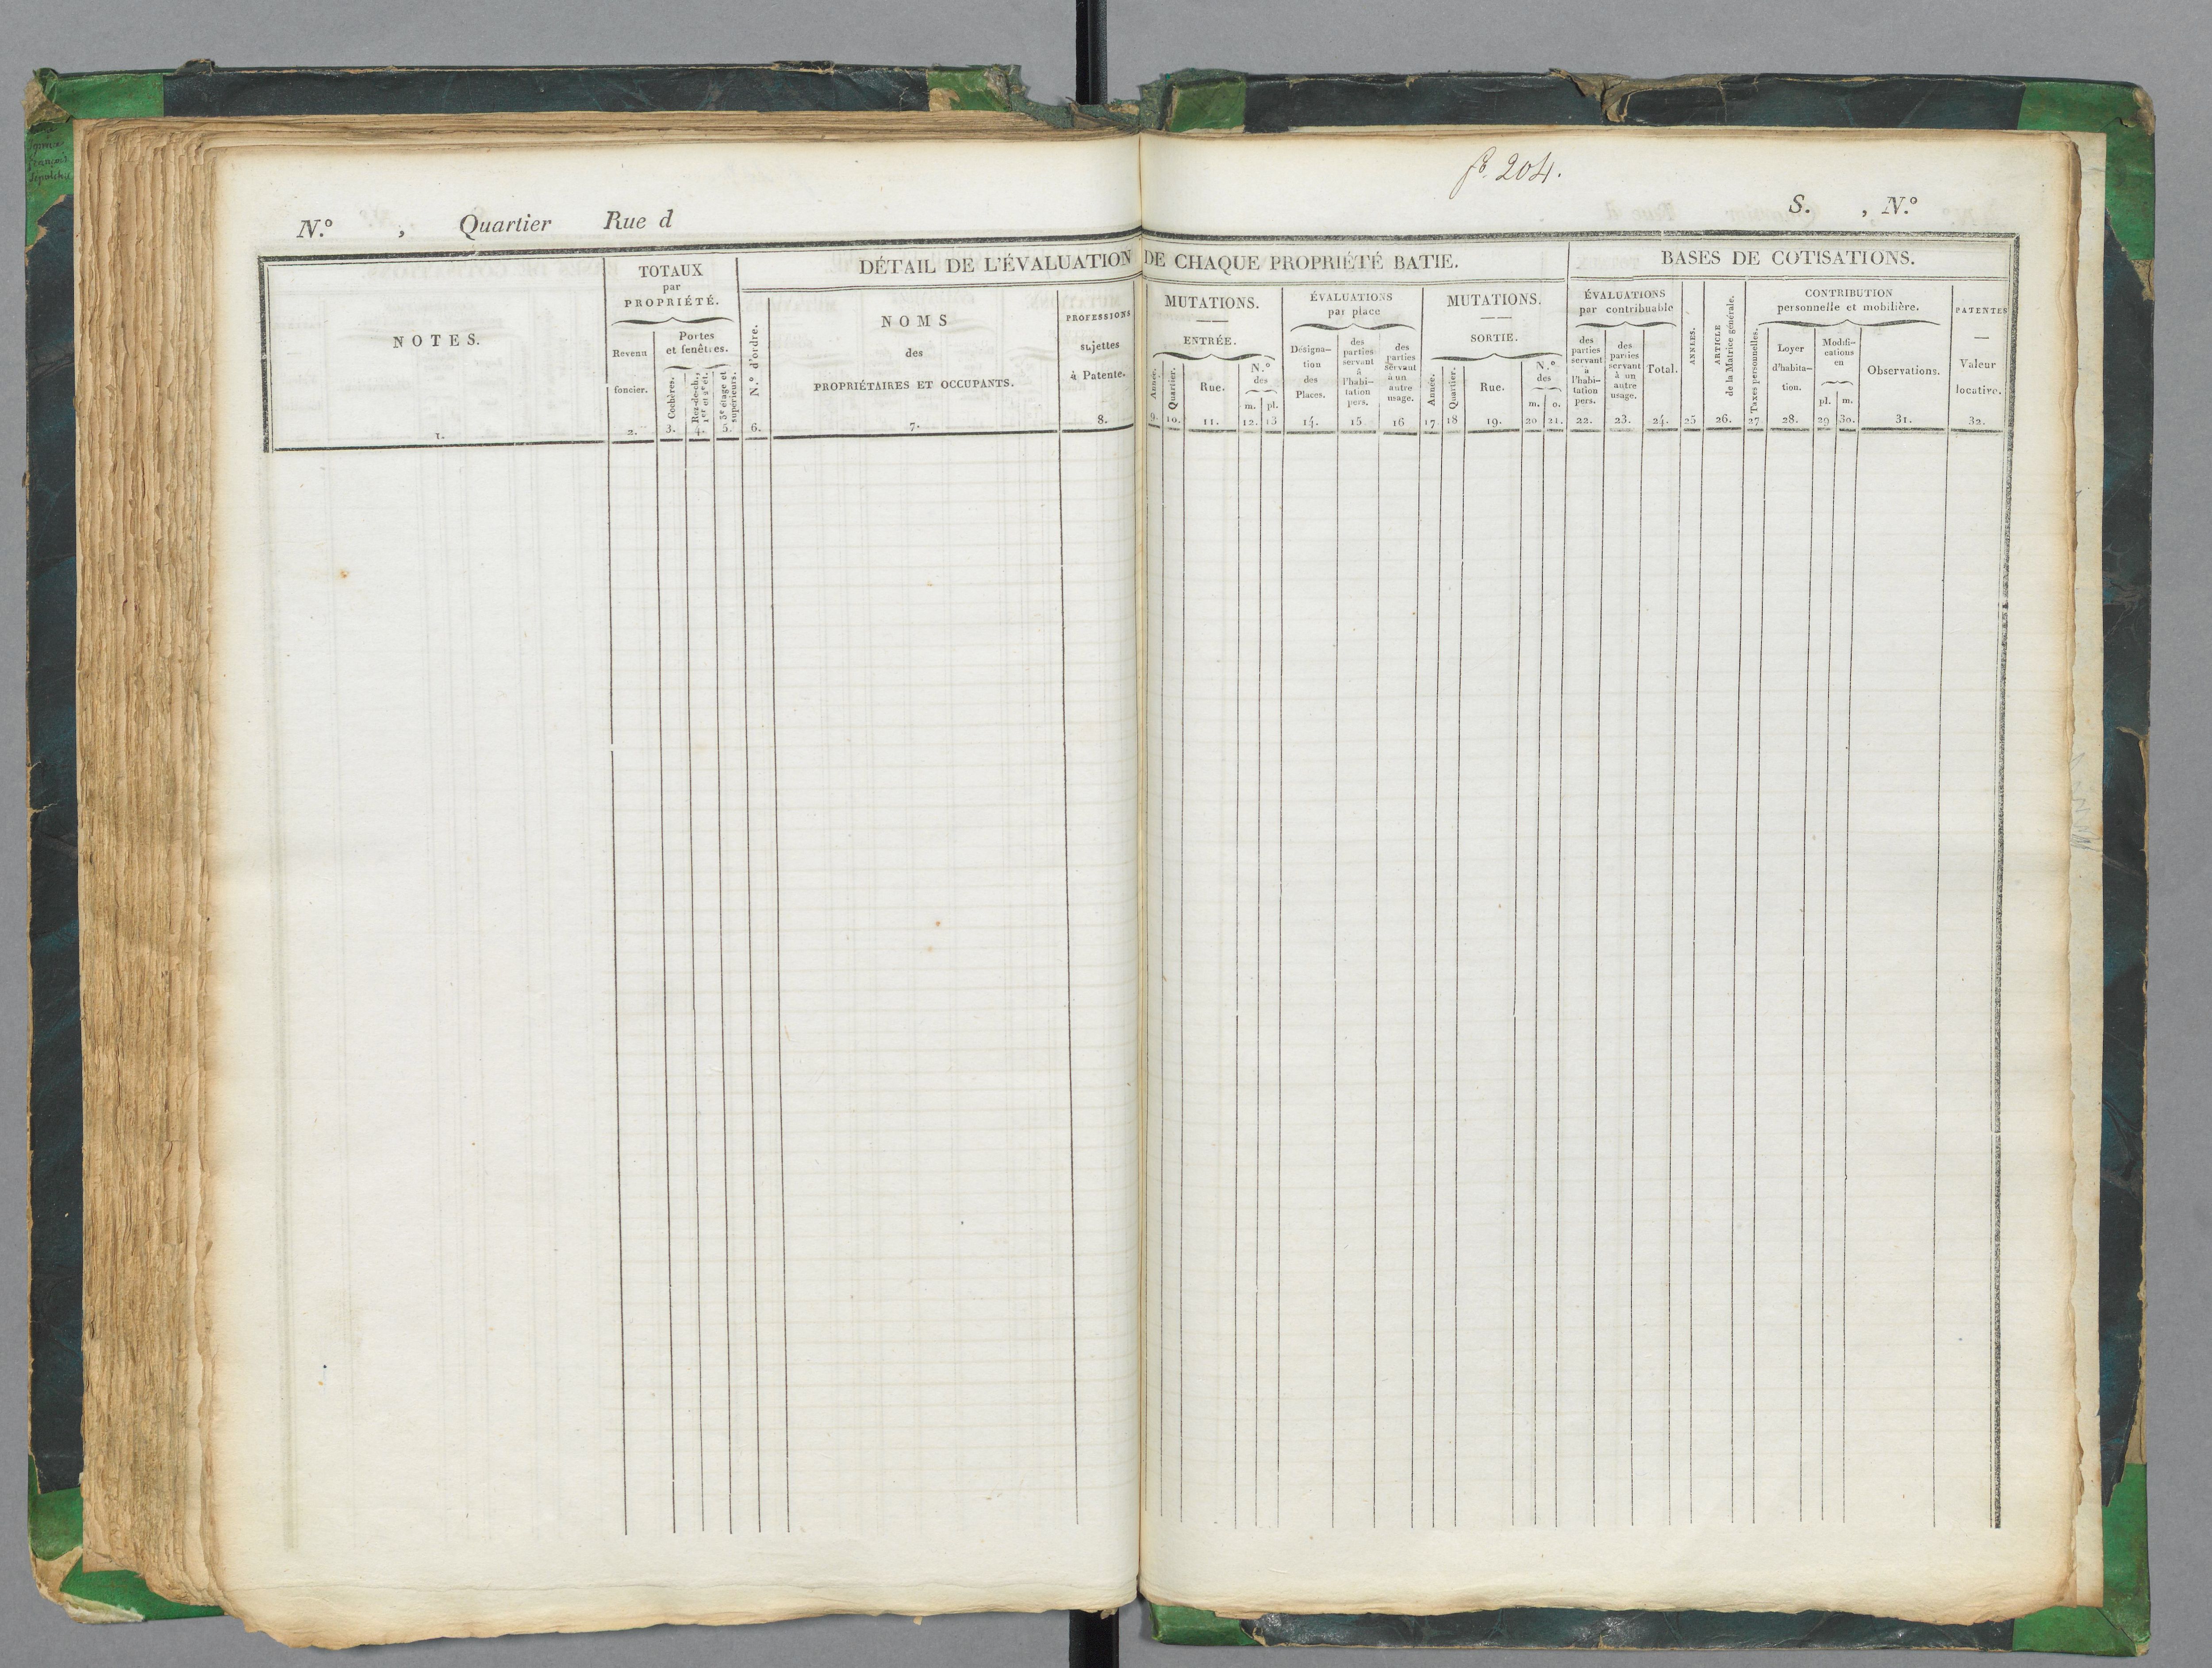 fo. 204.
N.o , Quartier Rue d
S. , N.o
NOTES.
1.
TOTAUX
par
PROPRIÉTÉ.
Revenu
foncier.
2.
Portes
et fenêtres.
Cochères.
3.
Rez-de-ch.,
1er et 2e ét.
4.
3e étage et
supérieurs.
5.
DÉTAIL DE L'ÉVALUATION DE CHAQUE PROPRIÉTÉ BATIE.
N.o d'ordre.
6.
NOMS
des
PROPRIÉTAIRES ET OCCUPANTS.
7.
PROFESSIONS
sujettes
à Patente.
8.
MUTATIONS.
ENTRÉE.
Année.
9.
Quartier.
10.
Rue.
11.
N.o
des
m. pl.
12. 13
ÉVALUATIONS
par place
Désigna-
tion
des
Places.
14.
des
parties
servant
à
l'habi-
tation
pers.
15.
des
parties
servant
à un
autre
usage.
16
MUTATIONS.
SORTIE.
Année.
17
Quartier.
18
Rue.
19.
N.o
des
m. o.
20 21.
BASES DE COTISATIONS.
ÉVALUATIONS
par contribuable
des
parties
servant
à
l'habi-
tation
pers.
22.
des
parties
servant
à un
autre
usage.
23.
Total.
24.
ANNÉES.
25
ARTICLE
de la Matrice générale.
26.
CONTRIBUTION
personnelle et mobilière.
Taxes personnelles.
27
Loyer
d'habita-
tion.
28.
Modifi-
cations
en
pl. m.
29 30.
Observations.
31.
PATENTES
Valeur
locative.
32.